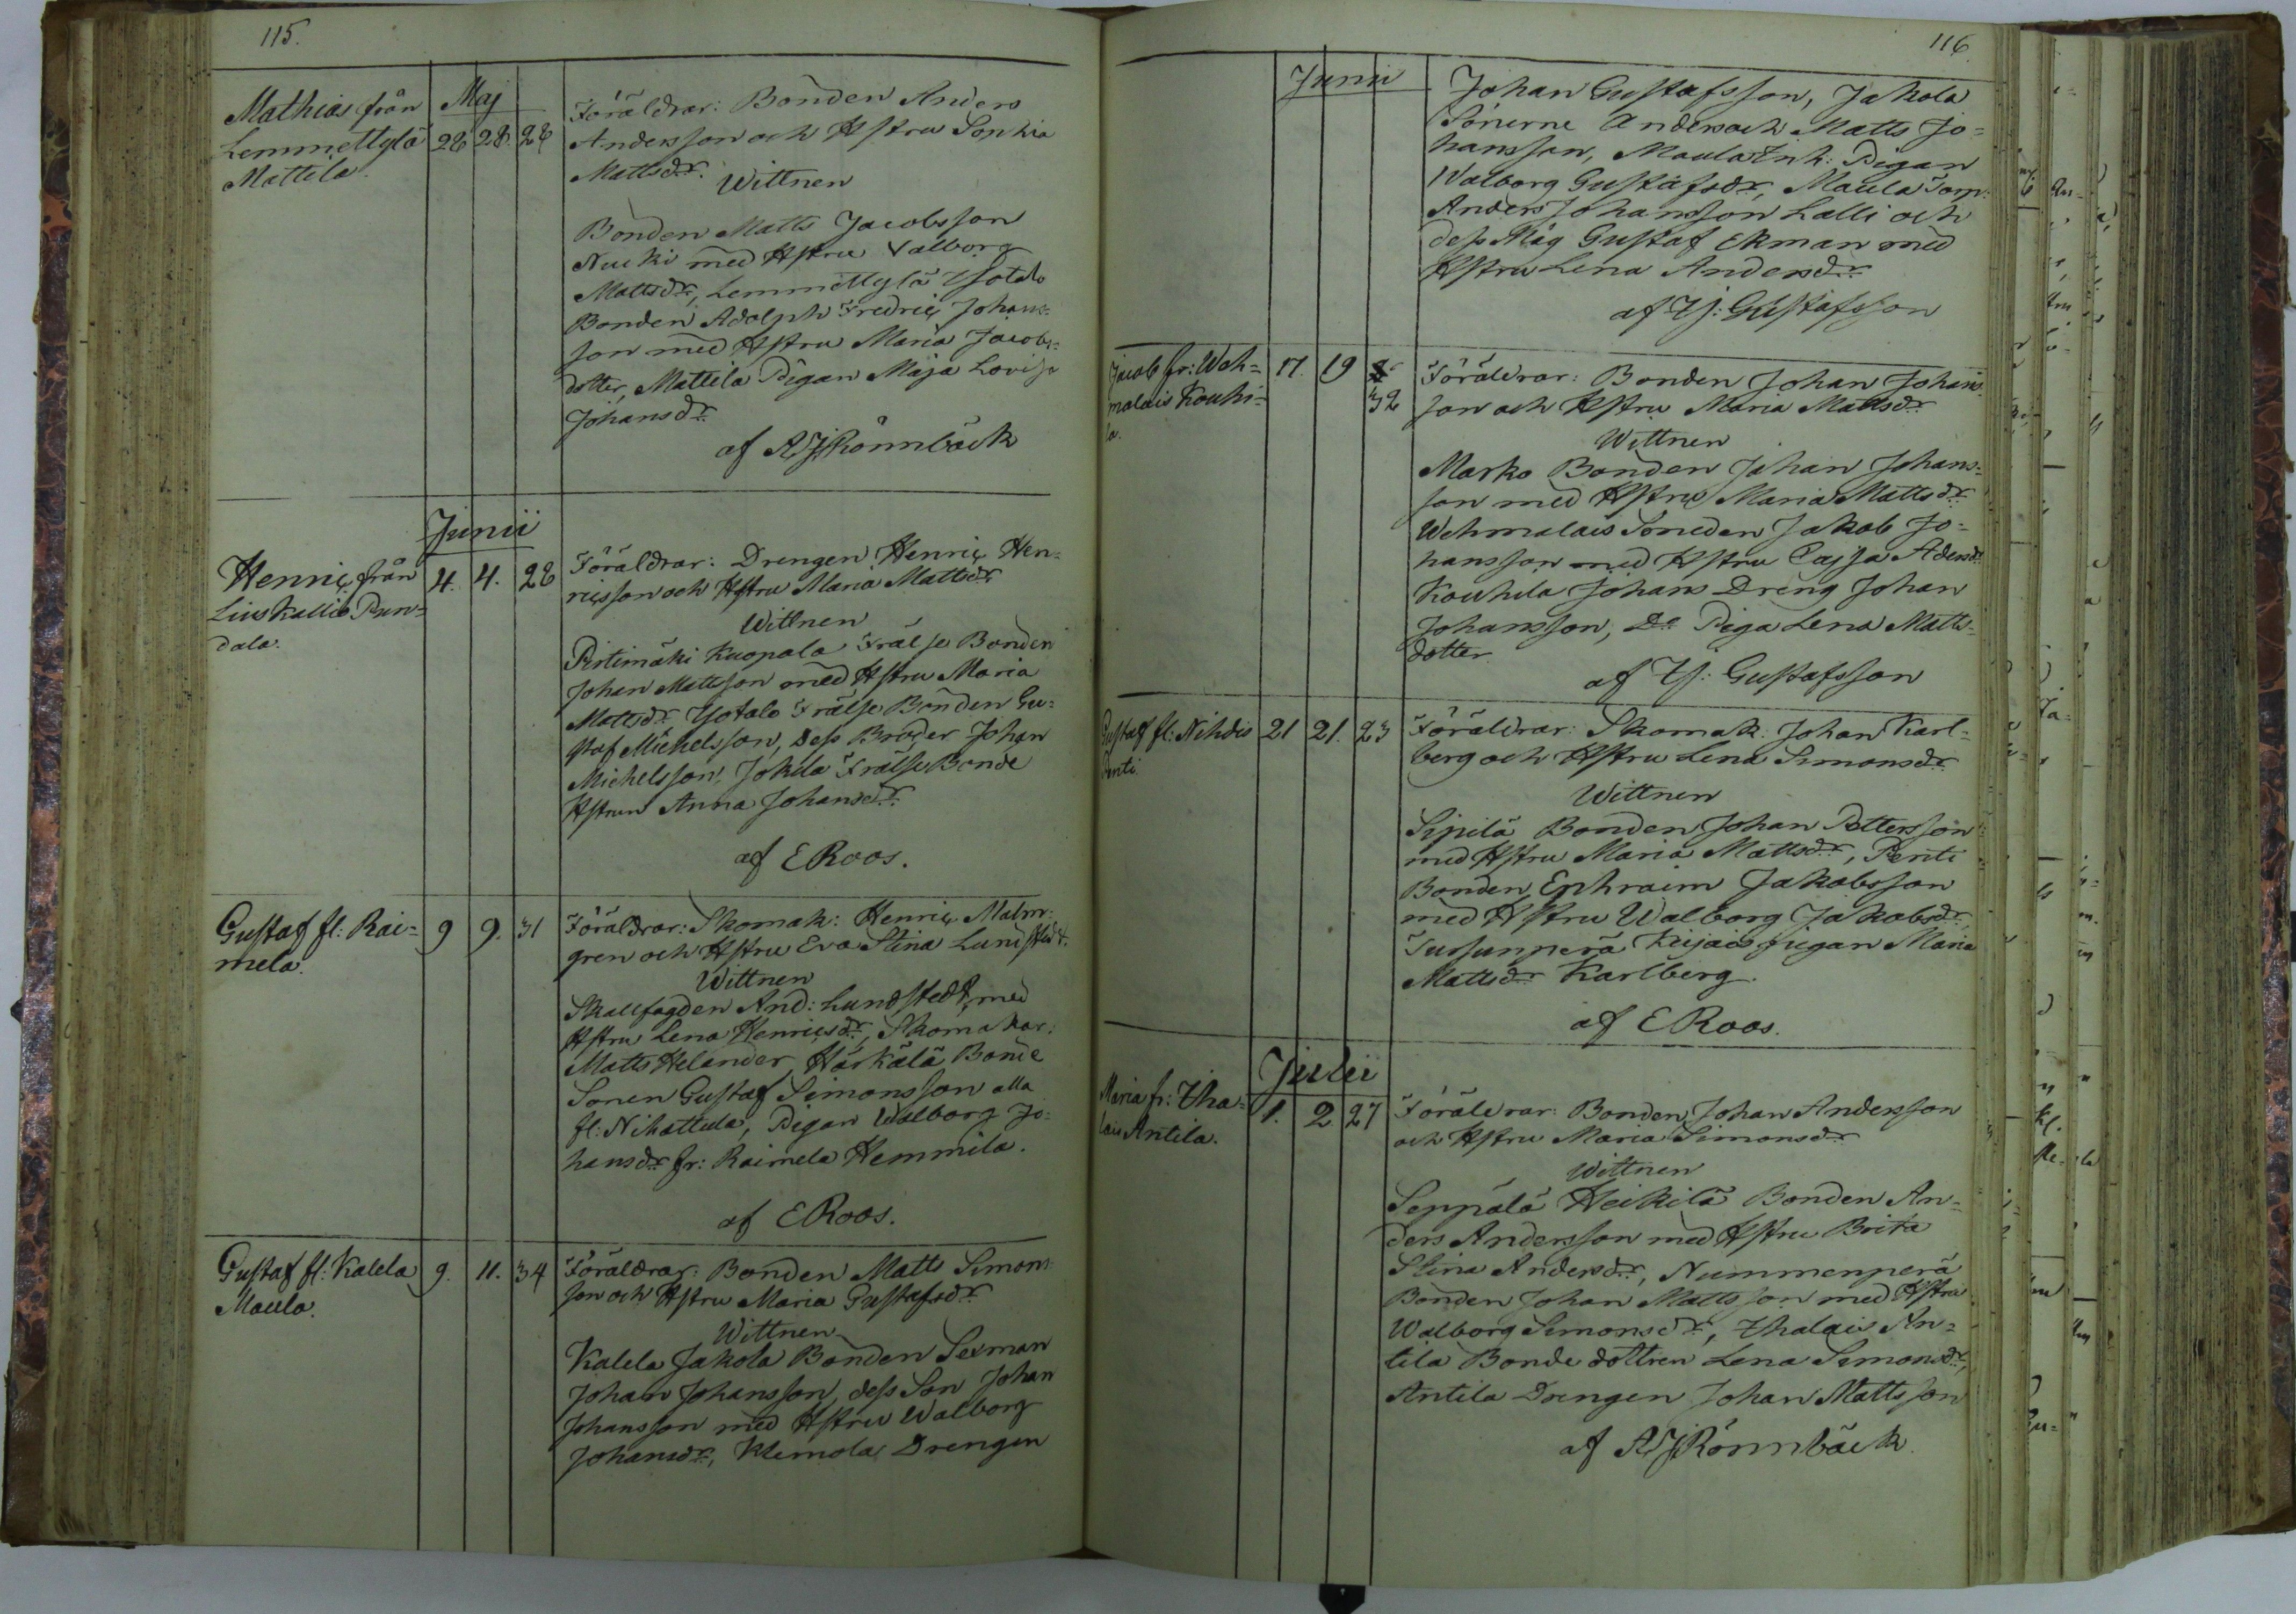 115.
Maj
Mathias från
Lemmettylä
Mattila.
28 28. 28
Föräldrar: Bonden Anders
Andersson och Hstru Sophia
Mattsdr.
Wittnen
Bonden Matts Jacobsson
Nucki med Hstru Valborg
Mattsdr, Lemmettylä Ysotalo
Bonden Adolph Fredric Johans-
son med Hstru Maria Jacobs-
dotter, Mattila Pigan Maja Lovisa
Johansdr
af AJRönnbäck
Junii
Henric från
Liuskallio Pun-
dala.
4. 4. 28
Föräldrar: Drengen Henric Hen-
ricsson och Hstru Maria Mattsdr
Wittnen
Pirtimäki Kuopala Frälse Bonden
Johan Mattsson med Hstru Maria
Mattsdr Ysotalo Frälse Bonden Gu-
staf Michelsson, dess Broder Johan
Michelsson, Jokela Frälse Bonde
Hstrun Anna Johansdr.
af E Roos.
Gustaf fl: Rai-
mela.
9 9. 31
Föräldrar: Skomak: Henric Malm-
gren och Hstru Eva Stina Lundstedt.
Wittnen
Skallfogden And: Lundstedt med
Hstru Lena Henricsdr, Skomakar:
Matts Helander, Härkälä Bonde
Sonen Gustaf Simonsson alla
fl: Nihattula, Pigan Walborg Jo-
hansdr fr: Raimela Hemmila.
af E Roos.
Gustaf fl: Kalela
Maula.
9. 11. 34
Föräldrar: Bonden Matts Simons-
son och Hstru Maria Gustafsdr
Wittnen
Kalela Jakola Bonden Sexman
Johan Johansson, dess Son Johan
Johansson med Hstru Walborg
Johansdr, Klemola Drengen
116
Junii
Johan Gustafsson, Jakola
Sönerne Anders och Matts Jo-
hansson, Maula Inh: Pigan
Walborg Gustafsdr, Maula Torp.
Anders Johansson Lalli och
dess Måg Gustaf Ekman med
Hstru Lena Andersdr
af Is: Gustafsson
Jacob fr: Weh-
malais Kouhi-
la.
17. 19
32
Föräldrar: Bonden Johan Johans-
son och Hstru Maria Mattsdr
Wittnen
Marko Bonden Johan Johans-
son med Hstru Maria Mattsdr
Wehmalais Soneden Jakob Jo-
hansson med Hstru Cajsa Adersdr
Kouhila Johans Dreng Johan
Johansson, Do Piga Lena Matts-
dotter.
af Is: Gustafsson
Gustaf fl: Nihdis
Penti.
21 21. 23
Föräldrar: Skomak: Johan Karl-
berg och Hstru Lena Simonsdr
Wittnen
Sipilä Bonden Johan Pettersson
med Hstru Maria Mattsdr, Penti
Bonden Ephraim Jakobsson
med Hstru Walborg Jakobsdr,
Jussunperä Keijais pigan Maria
Mattsdr Karlberg.
af E Roos.
Julii
Maria fr: Tha-
lais Antila.
1. 2 27
Föräldrar: Bonden Johan Andersson
och Hstru Maria Simonsdr
Wittnen
Seppälä Heikilä Bonden An-
ders Andersson med Hstru Brita
Stina Andersdr, Nummenperä
Bonden Johan Mattsson med Hstru
Walborg Simonsdr, Thalais An-
tila Bonde dottren Lena Simonsdr,
Antila Drengen Johan Mattsson
af AJRönnbäck.